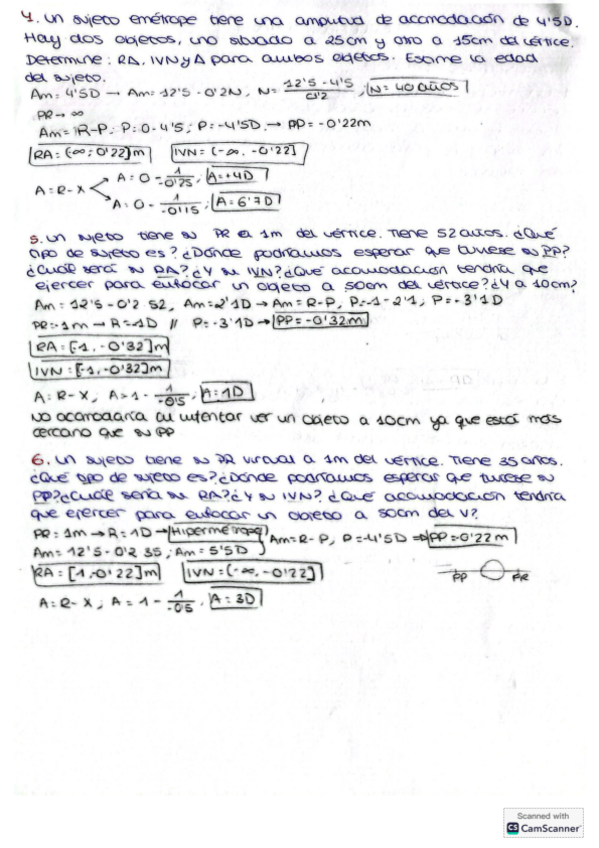 4. Un sujeto emétrope tiene una amplitud de acomodación de 4'5D.
Hay dos objetos, uno situado a 25cm y otro a 15cm del vértice.
Determine: RA, IVN y A para ambos objetos. Estime la edad
del sujeto.
Am = 4'5D → Am = 12'5 - 0'2N, N = 12'5 - 4'5 / 0'2 , N = 40 años
PR → ∞
Am = R-P; P = 0 - 4'5; P = -4'5D. → PP = -0'22m
RA = (∞; 0'22]m IVN = (-∞, -0'22]
A = R-X
A = 0 - 1/-0'25 ; A = +4D
A = 0 - 1/-0'15 ; A = 6'7D
5. Un sujeto tiene su PR a 1m del vértice. Tiene 52 años. ¿Qué
tipo de sujeto es? ¿Dónde podríamos esperar que tuviese su PP?
¿Cuál será su RA? ¿Y su IVN? ¿Qué acomodación tendría que
ejercer para enfocar un objeto a 50cm del vértice? ¿Y a 10cm?
Am = 12'5 - 0'2 · 52, Am = 2'1D → Am = R-P, P = -1 - 2'1, P = -3'1D
PR = -1m → R = -1D // P = -3'1D → PP = -0'32m
RA = [-1, -0'32]m
IVN = [-1, -0'32]m
A = R - X, A = -1 - 1/-0'5 , A = 1D
No acomodaría al intentar ver un objeto a 10cm ya que está más
cercano que su PP
6. Un sujeto tiene su PR virtual a 1m del vértice. Tiene 35 años.
¿Qué tipo de sujeto es? ¿Dónde podríamos esperar que tuviese su
PP? ¿Cuál sería su RA? ¿Y su IVN? ¿Qué acomodación tendría
que ejercer para enfocar un objeto a 50cm del V?
PR = 1m → R = 1D → Hipermétrope Am = R-P, P = -4'5D ⇒ PP = 0'22m
Am = 12'5 - 0'2 · 35, Am = 5'5D
RA = [1, -0'22]m IVN = (-∞, -0'22] PP PR
A = R - X ; A = 1 - 1/-0'5 , A = 3D
Scanned with
CS CamScanner